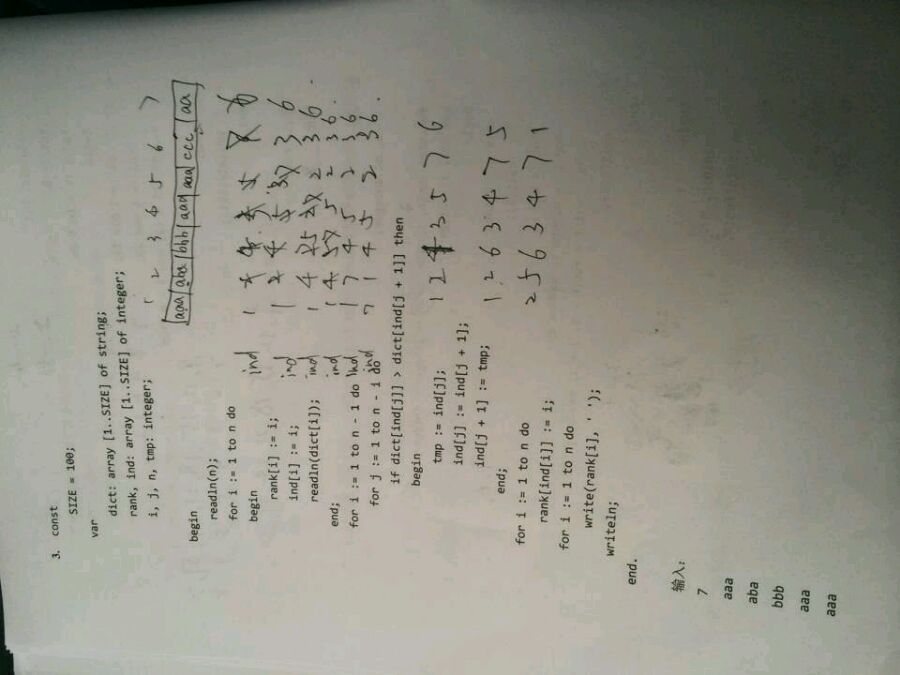 3. const
SIZE = 100;
var
dict: array [1..SIZE] of string;
rank, ind: array [1..SIZE] of integer;
i, j, n, tmp: integer;
1 2 3 4 5 6 7
aaa aba bbb aaa aaa ccc aa
begin
readln(n);
for i := 1 to n do
begin
rank[i] := i;
ind[i] := i;
readln(dict[i]);
end;
for i := 1 to n - 1 do
for j := 1 to n - i do
if dict[ind[j]] > dict[ind[j + 1]] then
begin
tmp := ind[j];
ind[j] := ind[j + 1];
ind[j + 1] := tmp;
end;
for i := 1 to n do
rank[ind[i]] := i;
for i := 1 to n do
write(rank[i], ' ');
writeln;
end.
ind
ind
ind
ind
ind
ind
7 1 4 5 2 3 6
1 2 6 3 4 7 5
2 5 6 3 4 7 1
输入:
7
aaa
aba
bbb
aaa
aaa